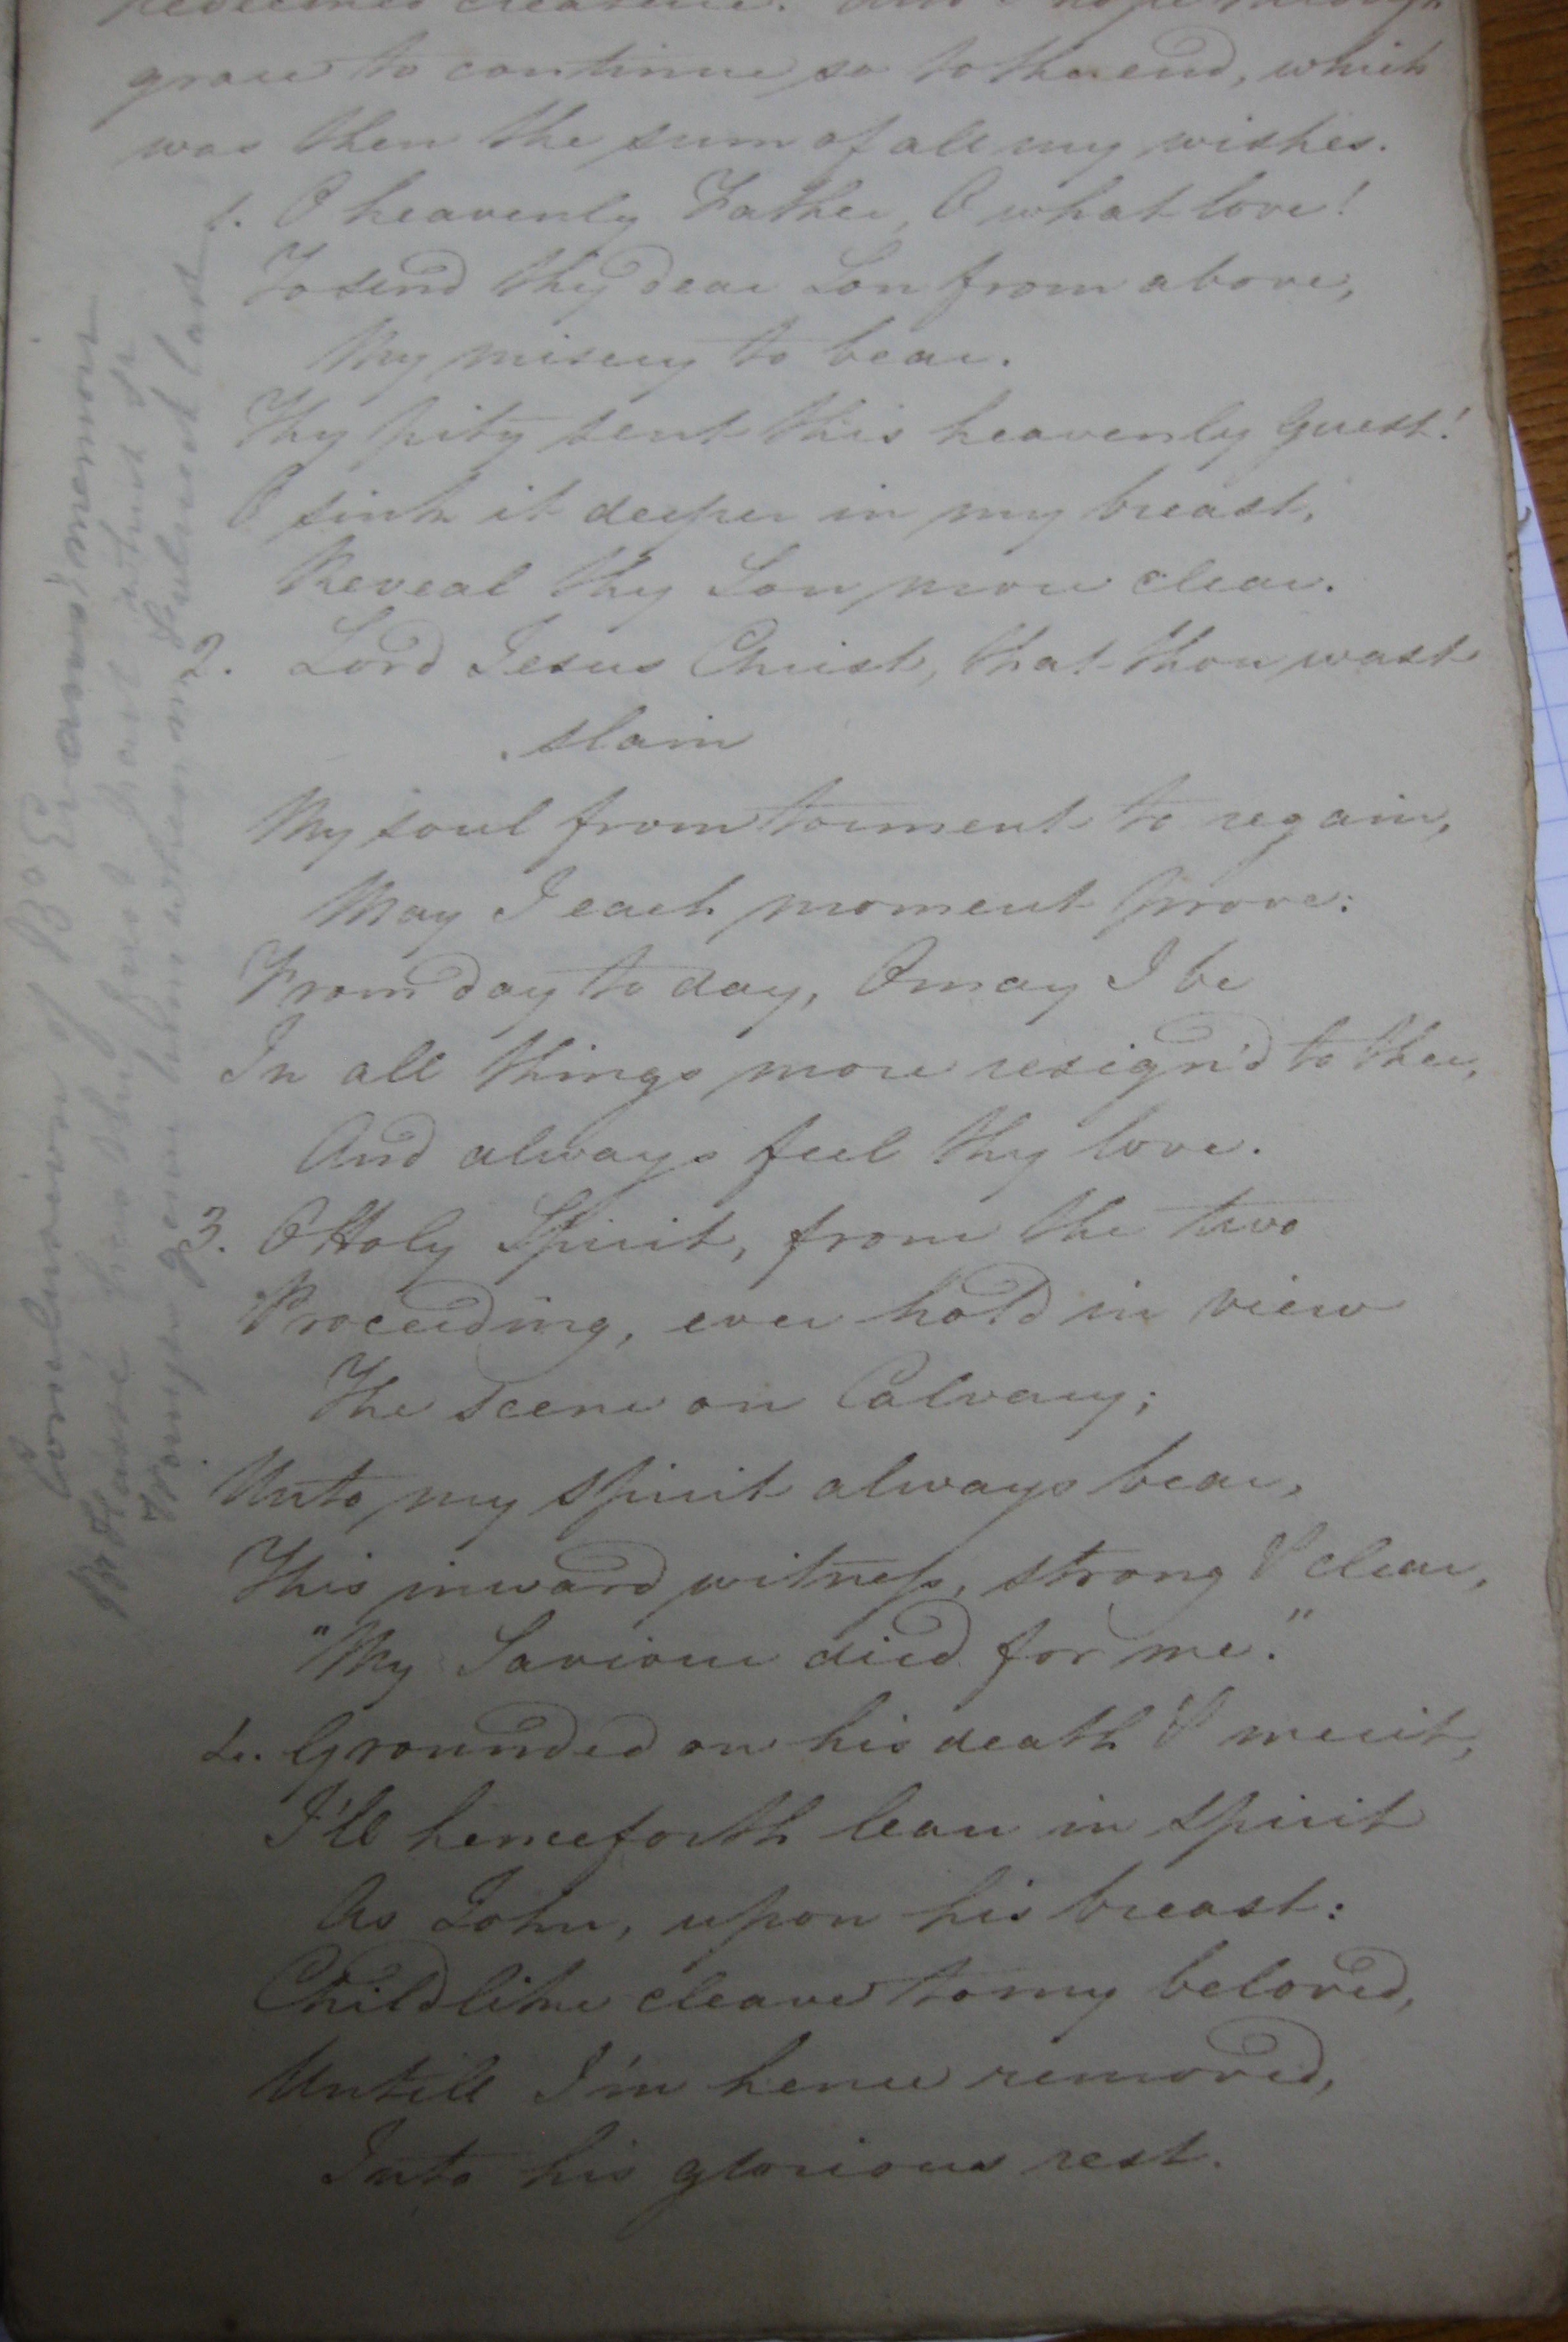 redeemed creature. And I hope through
grace to continue so to the end, which
was then the sum of all my wishes.
1. O heavenly Father, O what love!
To send thy dear Son from above,
My misery to bear.
Thy pity sent this heavenly Guest!
O sink it deeper in my breast,
Reveal thy Son more clear.
2. Lord Jesus Christ, that thou wast
slain
My soul from torment to regain,
May I each moment prove:
From day to day, O may I be
In all things more resign'd to thee,
And always feel thy love.
3. O Holy Spirit, from the two
Proceeding, ever hold in view
The scene on Calvary;
Unto my spirit always bear,
This inward witness, strong & clear,
"My Saviour died for me."
4. Grounded on his death & merit,
I'll henceforth lean in spirit
As John, upon his breast:
Childlike cleave to my beloved,
Untill I'm hence removed,
Into his glorious rest.
Conclusion of Br Evans's memoir